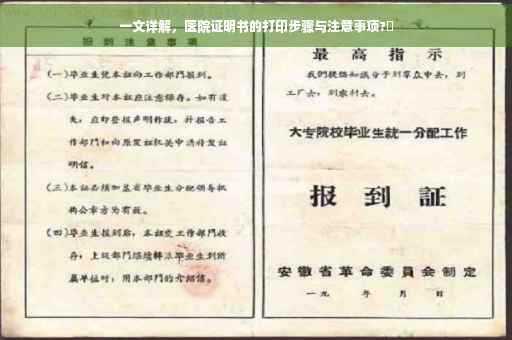 一文详解，医院证明书的打印步骤与注意事项?
报到注意事项
(一)毕业生凭本证向工作部门报到。
(二)毕业生对本证应注意保存。如有遗
失，应即登报声明作废，并报告工
作部门和向原发证机关申请补发证
明信。
(三)本证必须加盖省毕业生分配领导机
构公章方为有效。
(四)毕业生报到后，本证交工作部门收
存；上级部门继续转派毕业生到所
属单位时，用本部门的介绍信。
最高指示
我们提倡知识分子到群众中去，到
工厂去，到农村去。
大专院校毕业生统一分配工作
报到证
安徽省革命委员会制定
一九 年 月 日